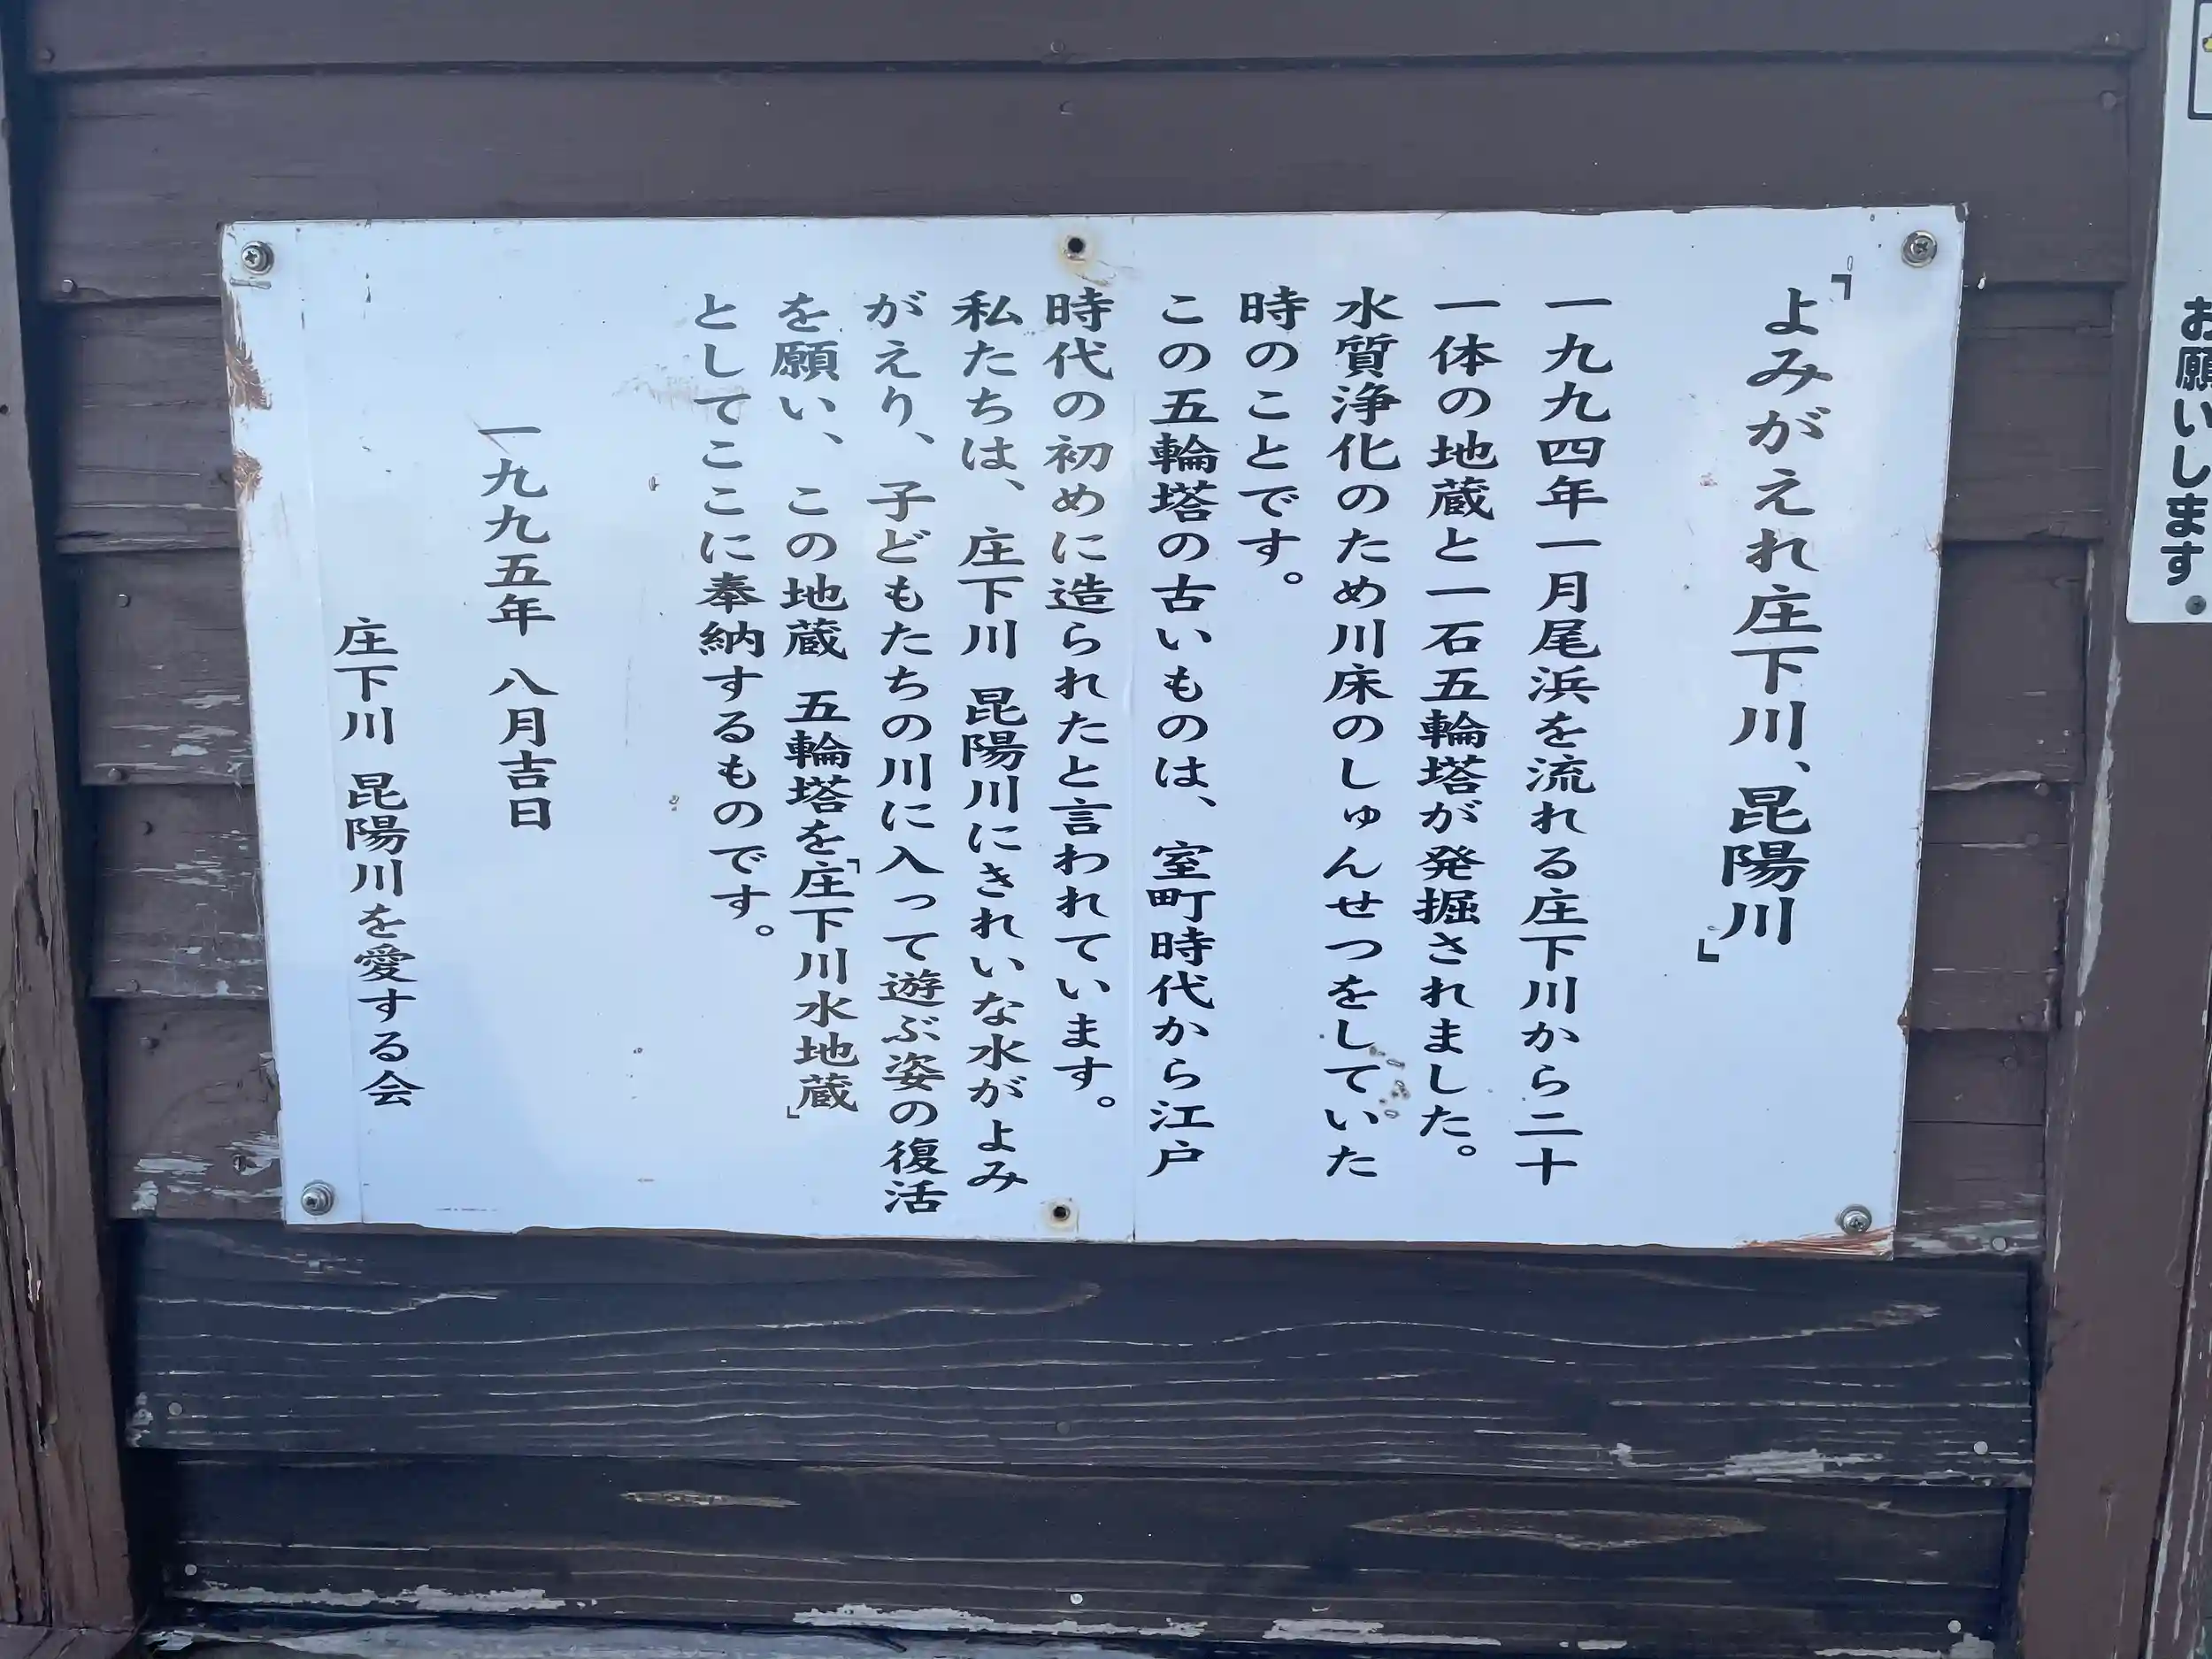 「よみがえれ庄下川、昆陽川」
一九九四年一月尾浜を流れる庄下川から二十
一体の地蔵と一石五輪塔が発掘されました。
水質浄化のため川床のしゅんせつをしていた
時のことです。
この五輪塔の古いものは、室町時代から江戸
時代の初めに造られたと言われています。
私たちは、庄下川 昆陽川にきれいな水がよみ
がえり、子どもたちの川に入って遊ぶ姿の復活
を願い、この地蔵 五輪塔を「庄下川水地蔵」
としてここに奉納するものです。
一九九五年 八月吉日
庄下川 昆陽川を愛する会
お願いします。